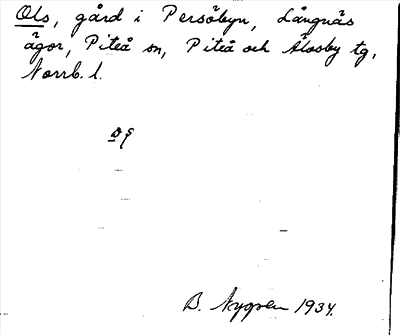 Ols, gård i Persöbyn, Långnäs
ägor, Piteå sn, Piteå och Älvsby tg,
Norrb. l.
B. Nygren 1934.